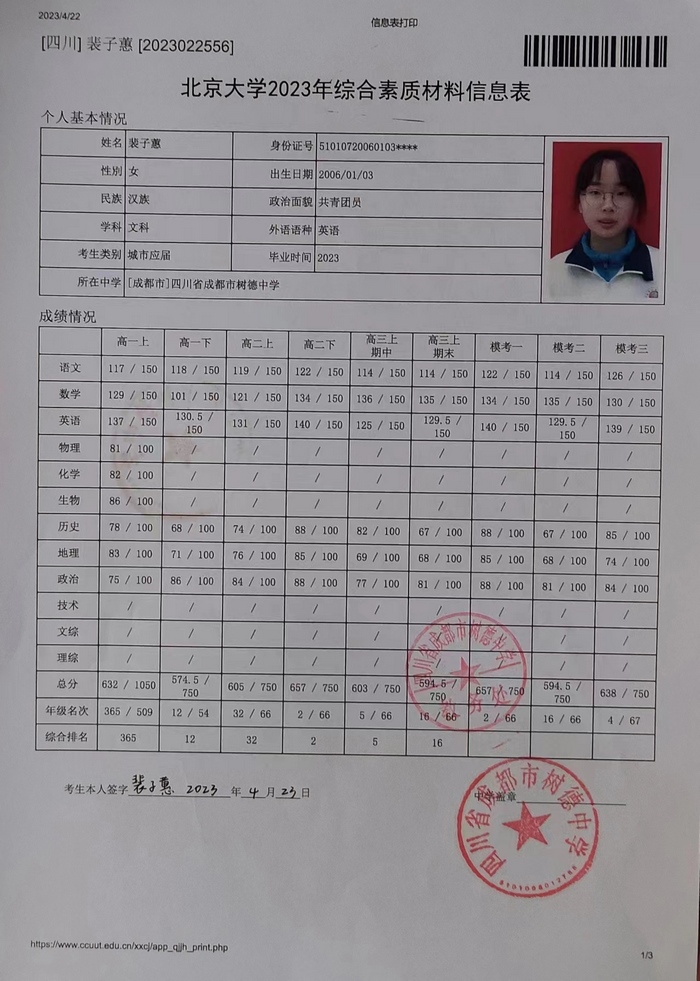 2023/4/22
信息表打印
[四川] 裴子蕙 [2023022556]
北京大学2023年综合素质材料信息表
个人基本情况
姓名 裴子蕙 身份证号 51010720060103****
性别 女 出生日期 2006/01/03
民族 汉族 政治面貌 共青团员
学科 文科 外语语种 英语
考生类别 城市应届 毕业时间 2023
所在中学 [成都市]四川省成都市树德中学
成绩情况
高一上 高一下 高二上 高二下 高三上期中 高三上期末 模考一 模考二 模考三
语文 117 / 150 118 / 150 119 / 150 122 / 150 114 / 150 114 / 150 122 / 150 114 / 150 126 / 150
数学 129 / 150 101 / 150 121 / 150 134 / 150 136 / 150 135 / 150 134 / 150 135 / 150 130 / 150
英语 137 / 150 130.5 / 150 131 / 150 140 / 150 125 / 150 129.5 / 150 140 / 150 129.5 / 150 139 / 150
物理 81 / 100 / / / / / / / /
化学 82 / 100 / / / / / / / /
生物 86 / 100 / / / / / / / /
历史 78 / 100 68 / 100 74 / 100 88 / 100 82 / 100 67 / 100 88 / 100 67 / 100 85 / 100
地理 83 / 100 71 / 100 76 / 100 85 / 100 69 / 100 68 / 100 85 / 100 68 / 100 74 / 100
政治 75 / 100 86 / 100 84 / 100 88 / 100 77 / 100 81 / 100 88 / 100 81 / 100 84 / 100
技术 / / / / / / / / /
文综 / / / / / / / / /
理综 / / / / / / / / /
总分 632 / 1050 574.5 / 750 605 / 750 657 / 750 603 / 750 594.5 / 750 657 / 750 594.5 / 750 638 / 750
年级名次 365 / 509 12 / 54 32 / 66 2 / 66 5 / 66 16 / 66 2 / 66 16 / 66 4 / 67
综合排名 365 12 32 2 5 16
四川省成都市树德中学
教务处
考生本人签字 裴子蕙 2023 年 4 月 23 日
中学盖章
四川省成都市树德中学
https://www.ccuut.edu.cn/xxcj/app_qjjh_print.php
1/3